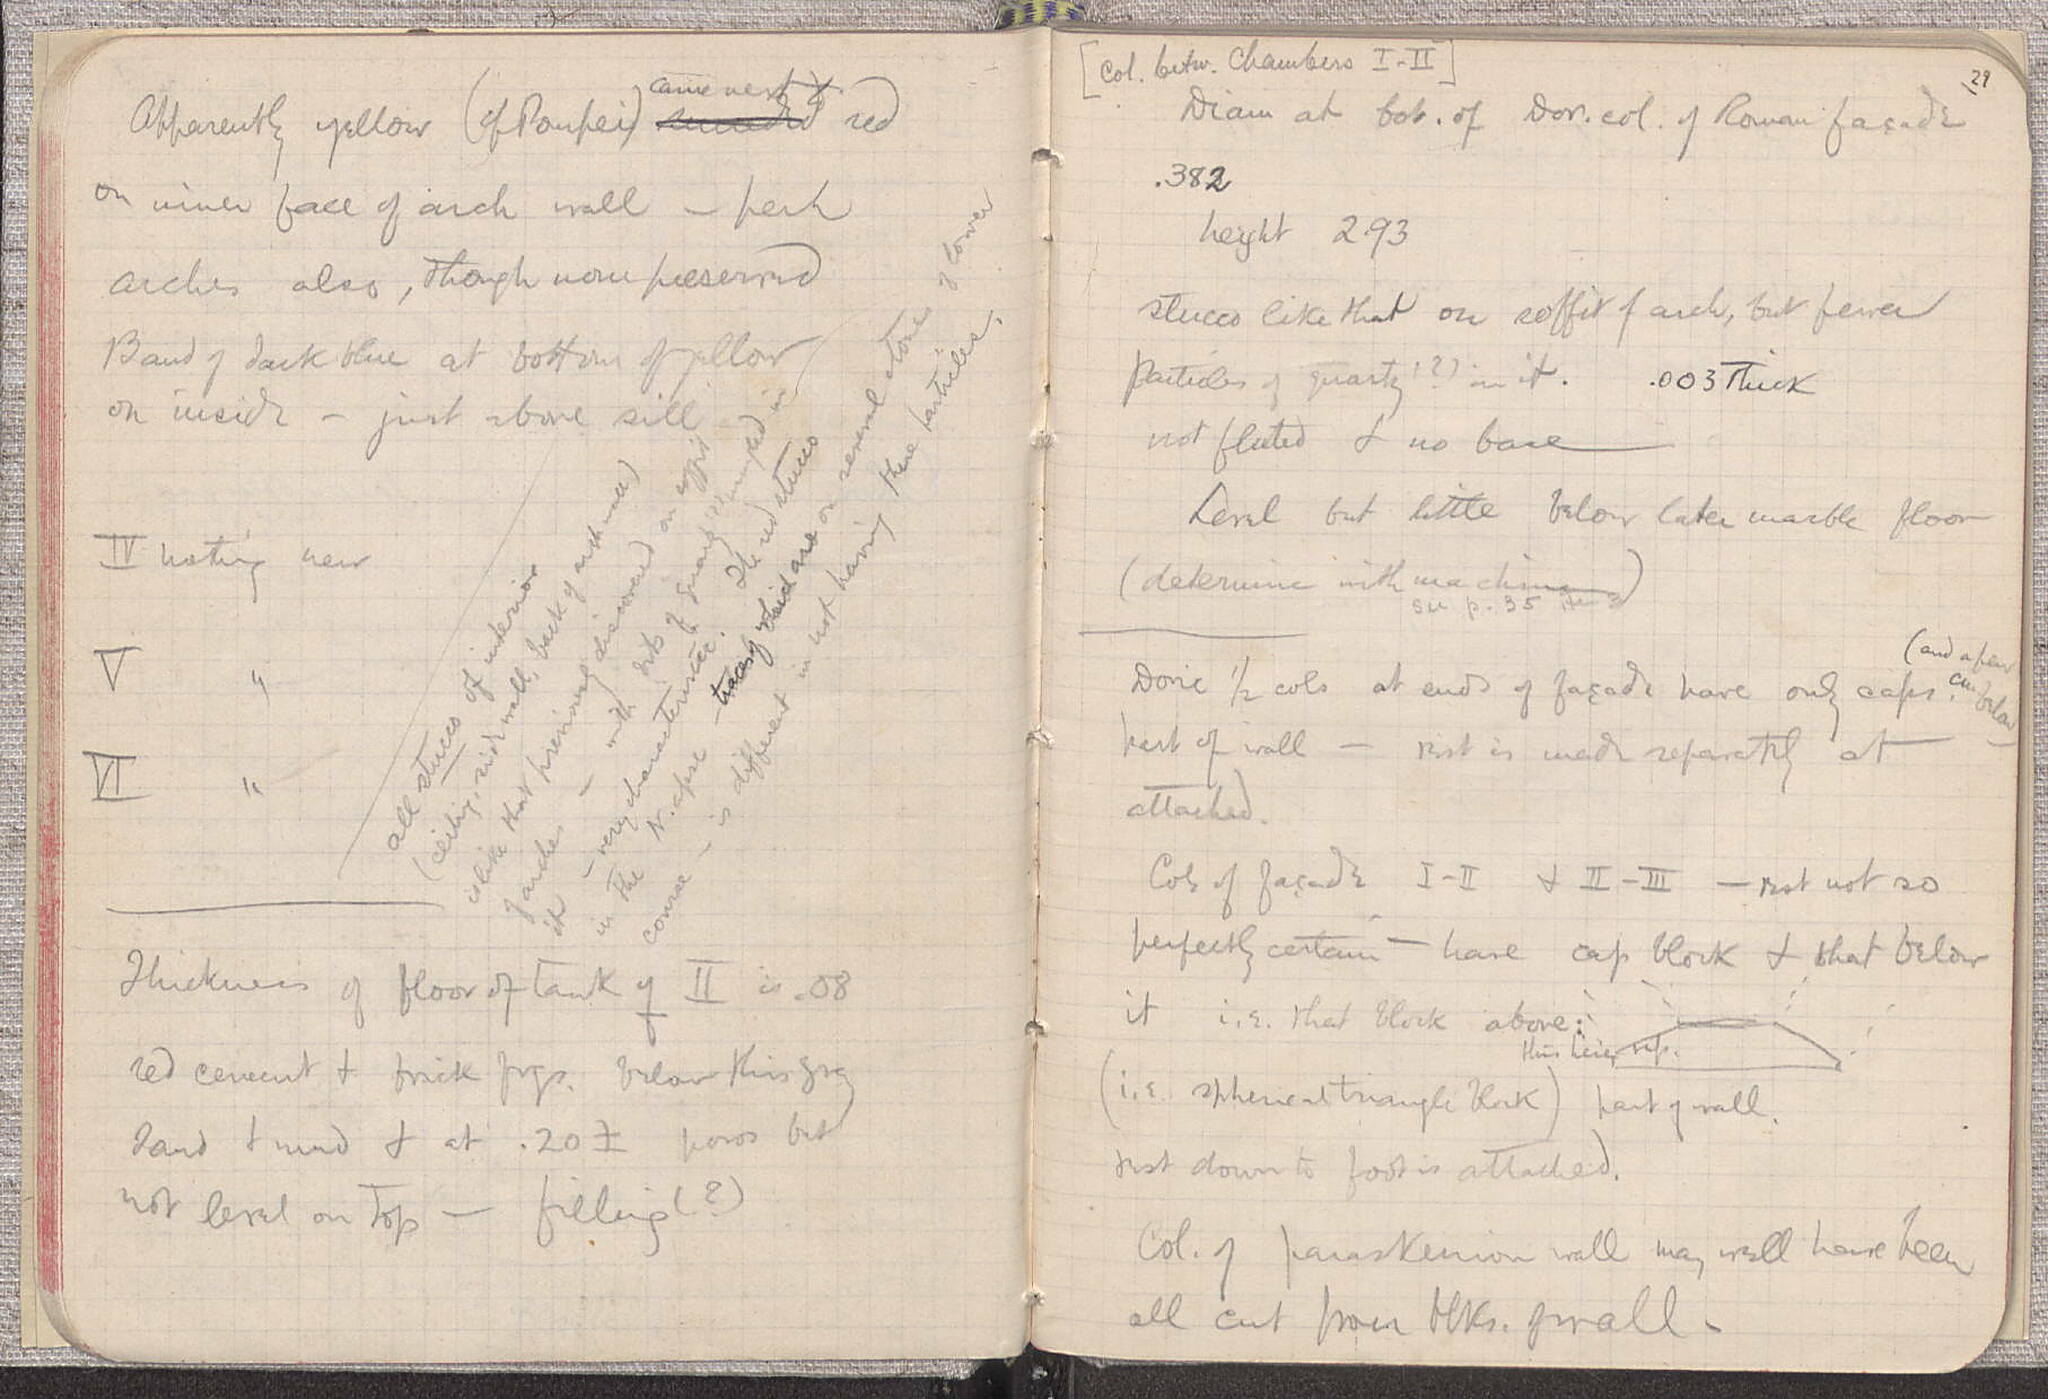 Apparently yellow (of Pompeii) came next to red
on inner face of arch wall – perh
arches also, though none preserved
Band of dark blue at bottom of yellow
on inside – just above sill
IV noting new
V "
VI "
all stucco of interior
(ceiling, side wall, back of arch wall)
is like that previously discovered on soffit
of arches – with bits of quartz(?) mixed in
it – very characteristic. The red stucco
in the N. apse – traces of which are on several stones of lower
course – is different in not having these particles.
Thickness of floor of tank of II is .08
red cement + brick frgs. below this grey
sand + mud + at .20 ± poros but
not level on top – filling (?)
29
[Col. betw. Chambers I-II]
Diam at bot. of Dor. col. of Roman façade
.382
height 2.93
stucco like that on soffit of arch, but fewer
particles of quartz (?) in it. .003 thick
not fluted + no base
Level but little below later marble floor
(determine with machine)
see p. 35
(and a few
cm below
Doric ½ cols at ends of façade have only caps.
part of wall – rest is made separately at
attached.
Cols of façade I-II + II-III – rest not so
perfectly certain – have cap block + that below
it i.e. that block above:
this being sep.
(i.e. spherical triangle block) part of wall.
rest down to foot is attached.
Col. of paraskenion wall may well have been
all cut from blks. of wall –